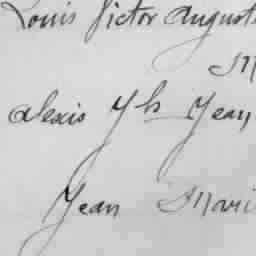 Louis Victor August
M
Alexis Yh Jean
Jean Mari